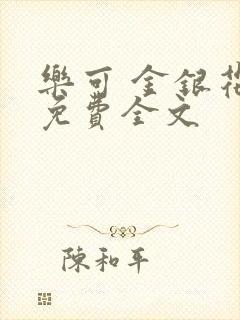 樂可 金銀花
免費全文
陳和平